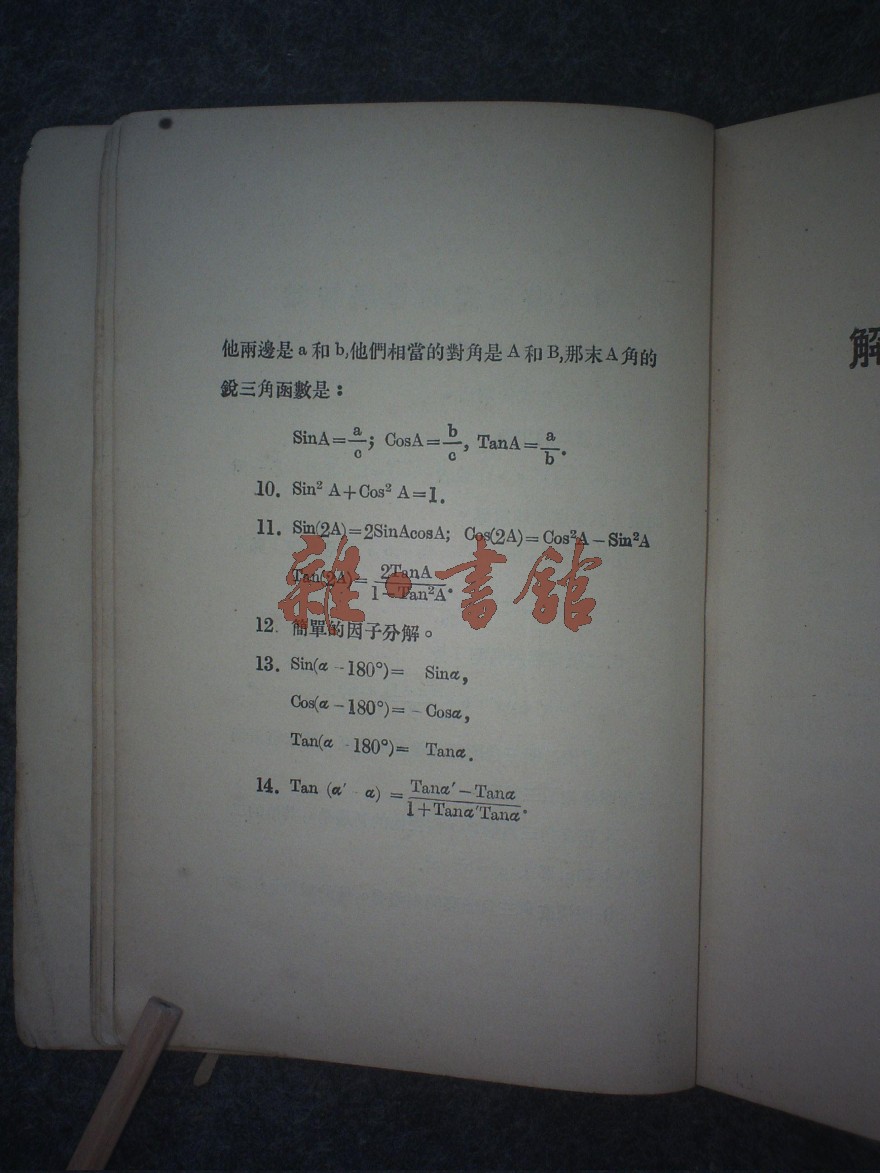 他兩邊是 a 和 b,他們相當的對角是 A 和 B,那末 A 角的
銳三角函數是：
SinA=a/c; CosA=b/c, TanA=a/b.
10. Sin² A+Cos² A=1.
11. Sin(2A)=2SinAcosA; Cos(2A)=Cos²A－Sin²A
Tan(2A)=2TanA/1－Tan²A.
雜·書館
12. 簡單的因子分解。
13. Sin(α－180°)= Sinα,
Cos(α－180°)=－Cosα,
Tan(α 180°)= Tanα.
14. Tan (α′ α) = Tanα′－Tanα/1+Tanα′Tanα.
解